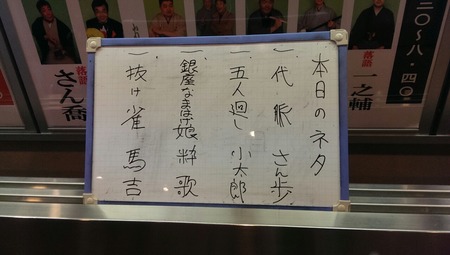 本日のネタ
一 代脈 さん歩
一 五人廻し 小太郎
一 銀座なまはげ娘 粋歌
一 抜け雀 馬吉
二〇〜八・四〇
落語 一之輔
落語 さん喬